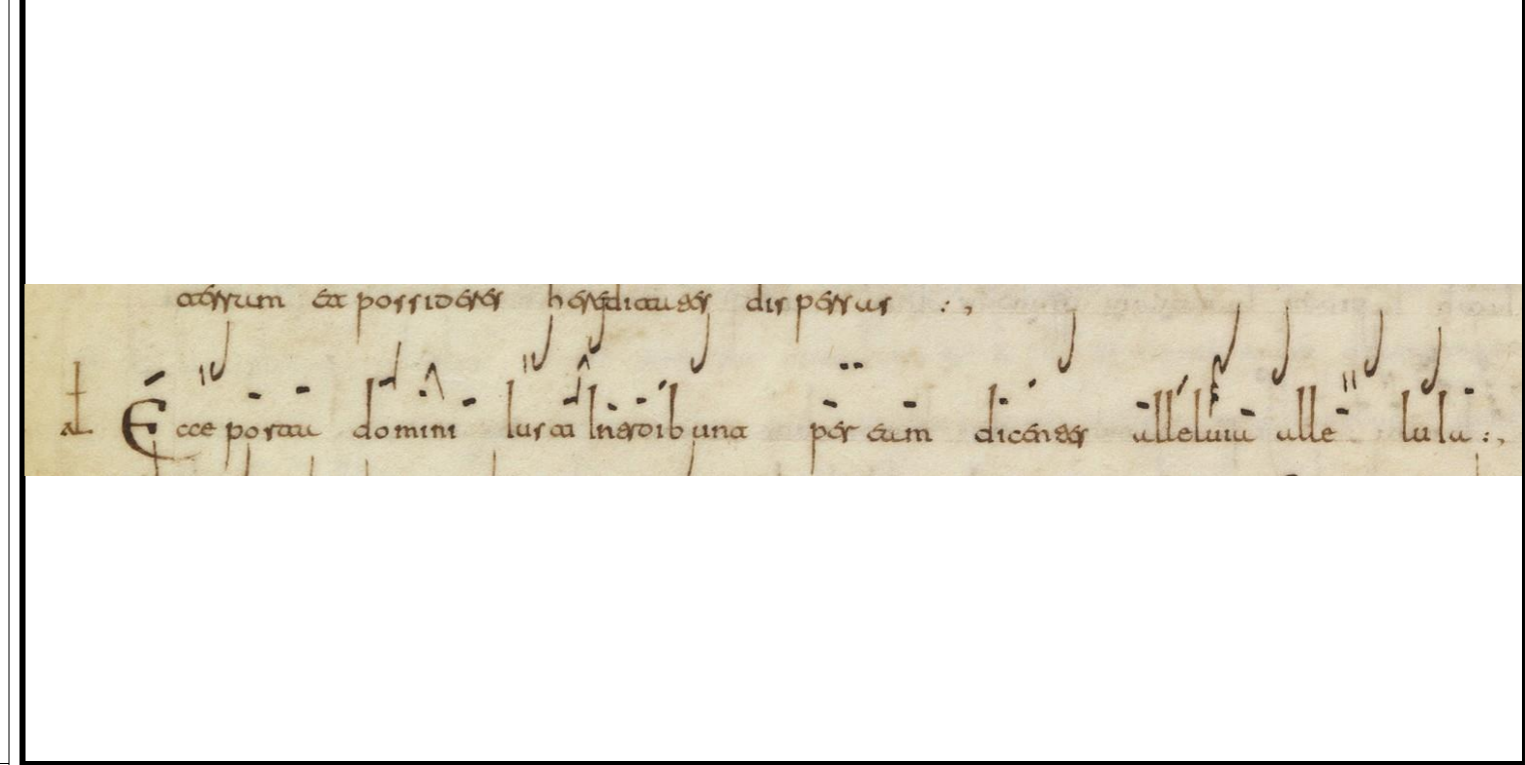 terram et possideres hereditates dispersas :,
Ecce porta domini iusti introibunt per eam dicentes alleluia alleluia :,